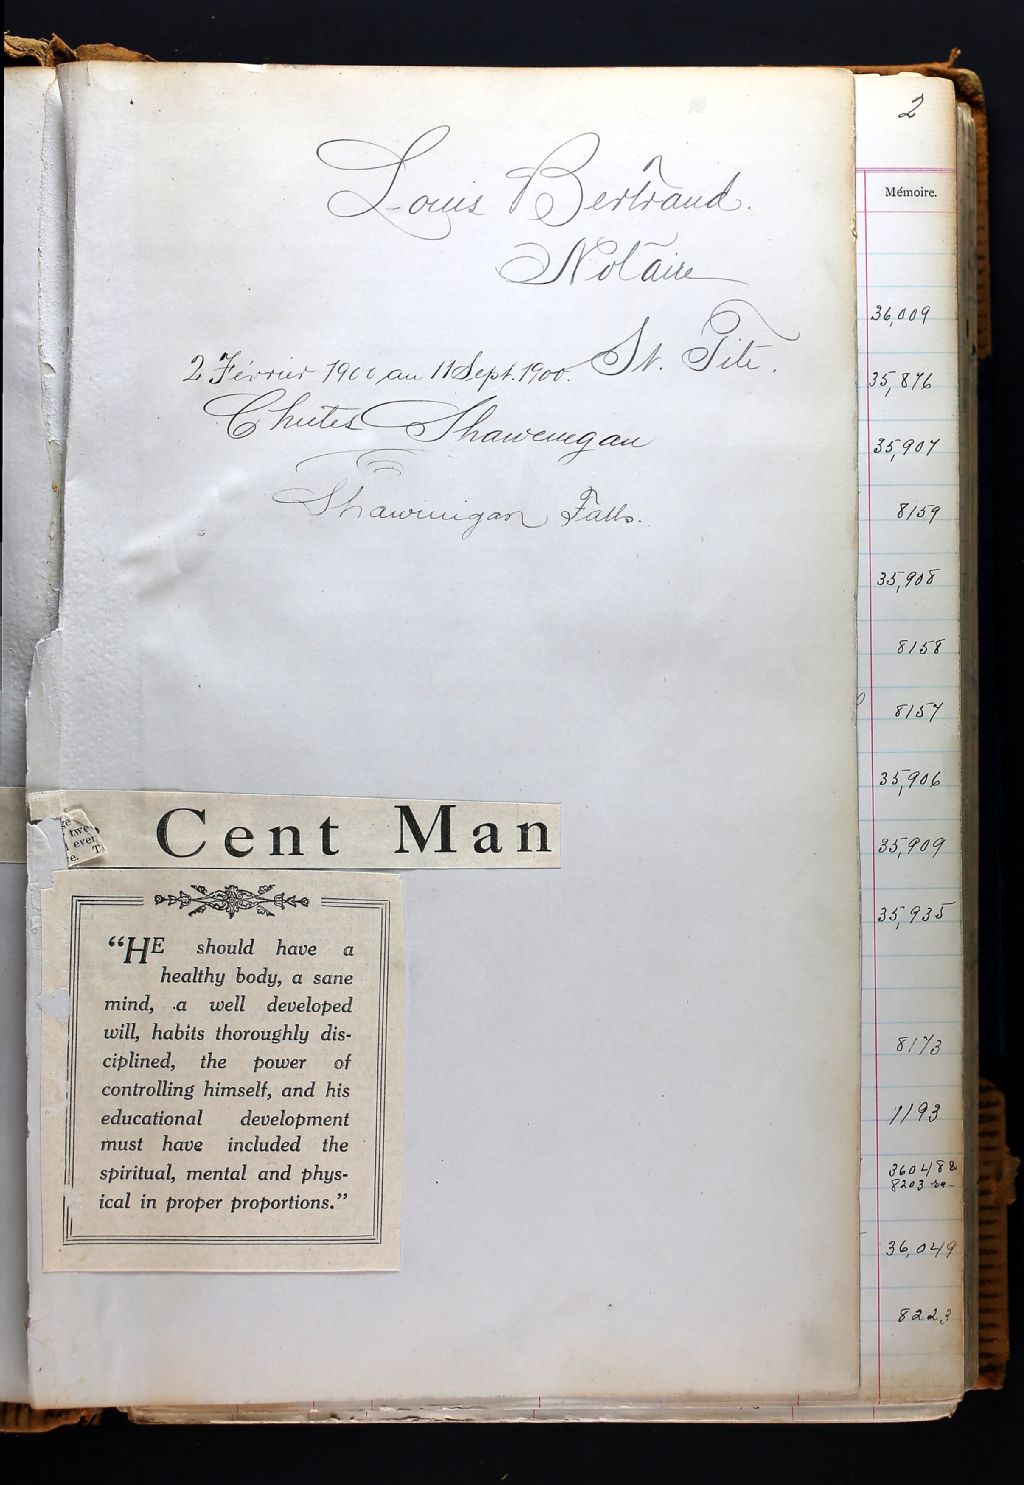 Louis Bertrand.
Notaire
St. Tite.
2 Février 1900 au 11 Sept. 1900.
Chutes Shawenegan
Shawinigan Falls.
Cent Man
twe
ever
e. T
"HE should have a
healthy body, a sane
mind, a well developed
will, habits thoroughly dis-
ciplined, the power of
controlling himself, and his
educational development
must have included the
spiritual, mental and phys-
ical in proper proportions."
2
Mémoire.
36,009
35,876
35,907
8159
35,908
8158
8157
35,906
35,909
35,935
8173
1193
360488
8203
36,049
8223